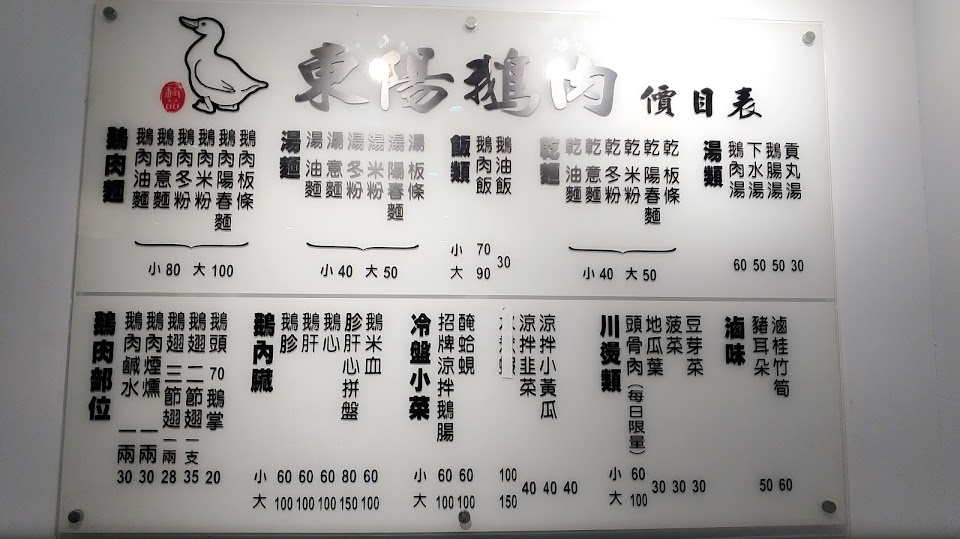 東陽鵝肉 價目表
鵝肉麵
鵝肉油麵
鵝肉意麵
鵝肉冬粉
鵝肉米粉
鵝肉陽春麵
鵝肉板條
小80 大100
湯麵
湯 油麵
湯 意麵
湯 冬粉
湯 米粉
湯 陽春麵
湯 板條
小40 大50
飯類
鵝肉飯 小70 大90
鵝油飯 30
乾麵
乾 油麵
乾 意麵
乾 冬粉
乾 米粉
乾 陽春麵
乾 板條
小40 大50
湯類
鵝肉湯 60
下水湯 50
鵝腸湯 50
貢丸湯 30
鵝肉部位
鵝肉鹹水 一兩 30
鵝肉煙燻 一兩 30
鵝翅 三節翅 一兩 28
鵝翅 二節翅 一支 35
鵝頭 70 鵝掌 20
鵝內臟
鵝胗 小60 大100
鵝肝 60 100
鵝心 60 100
胗肝心拼盤 80 150
鵝米血 60 100
冷盤小菜
招牌涼拌鵝腸 小60 大100
醃蛤蜆 60 100
100 150
涼拌韭菜 40
涼拌小黃瓜 40
40
川燙類
頭骨肉(每日限量) 小60 大100
地瓜葉 30
菠菜 30
豆芽菜 30
滷味
豬耳朵 50
滷桂竹筍 60